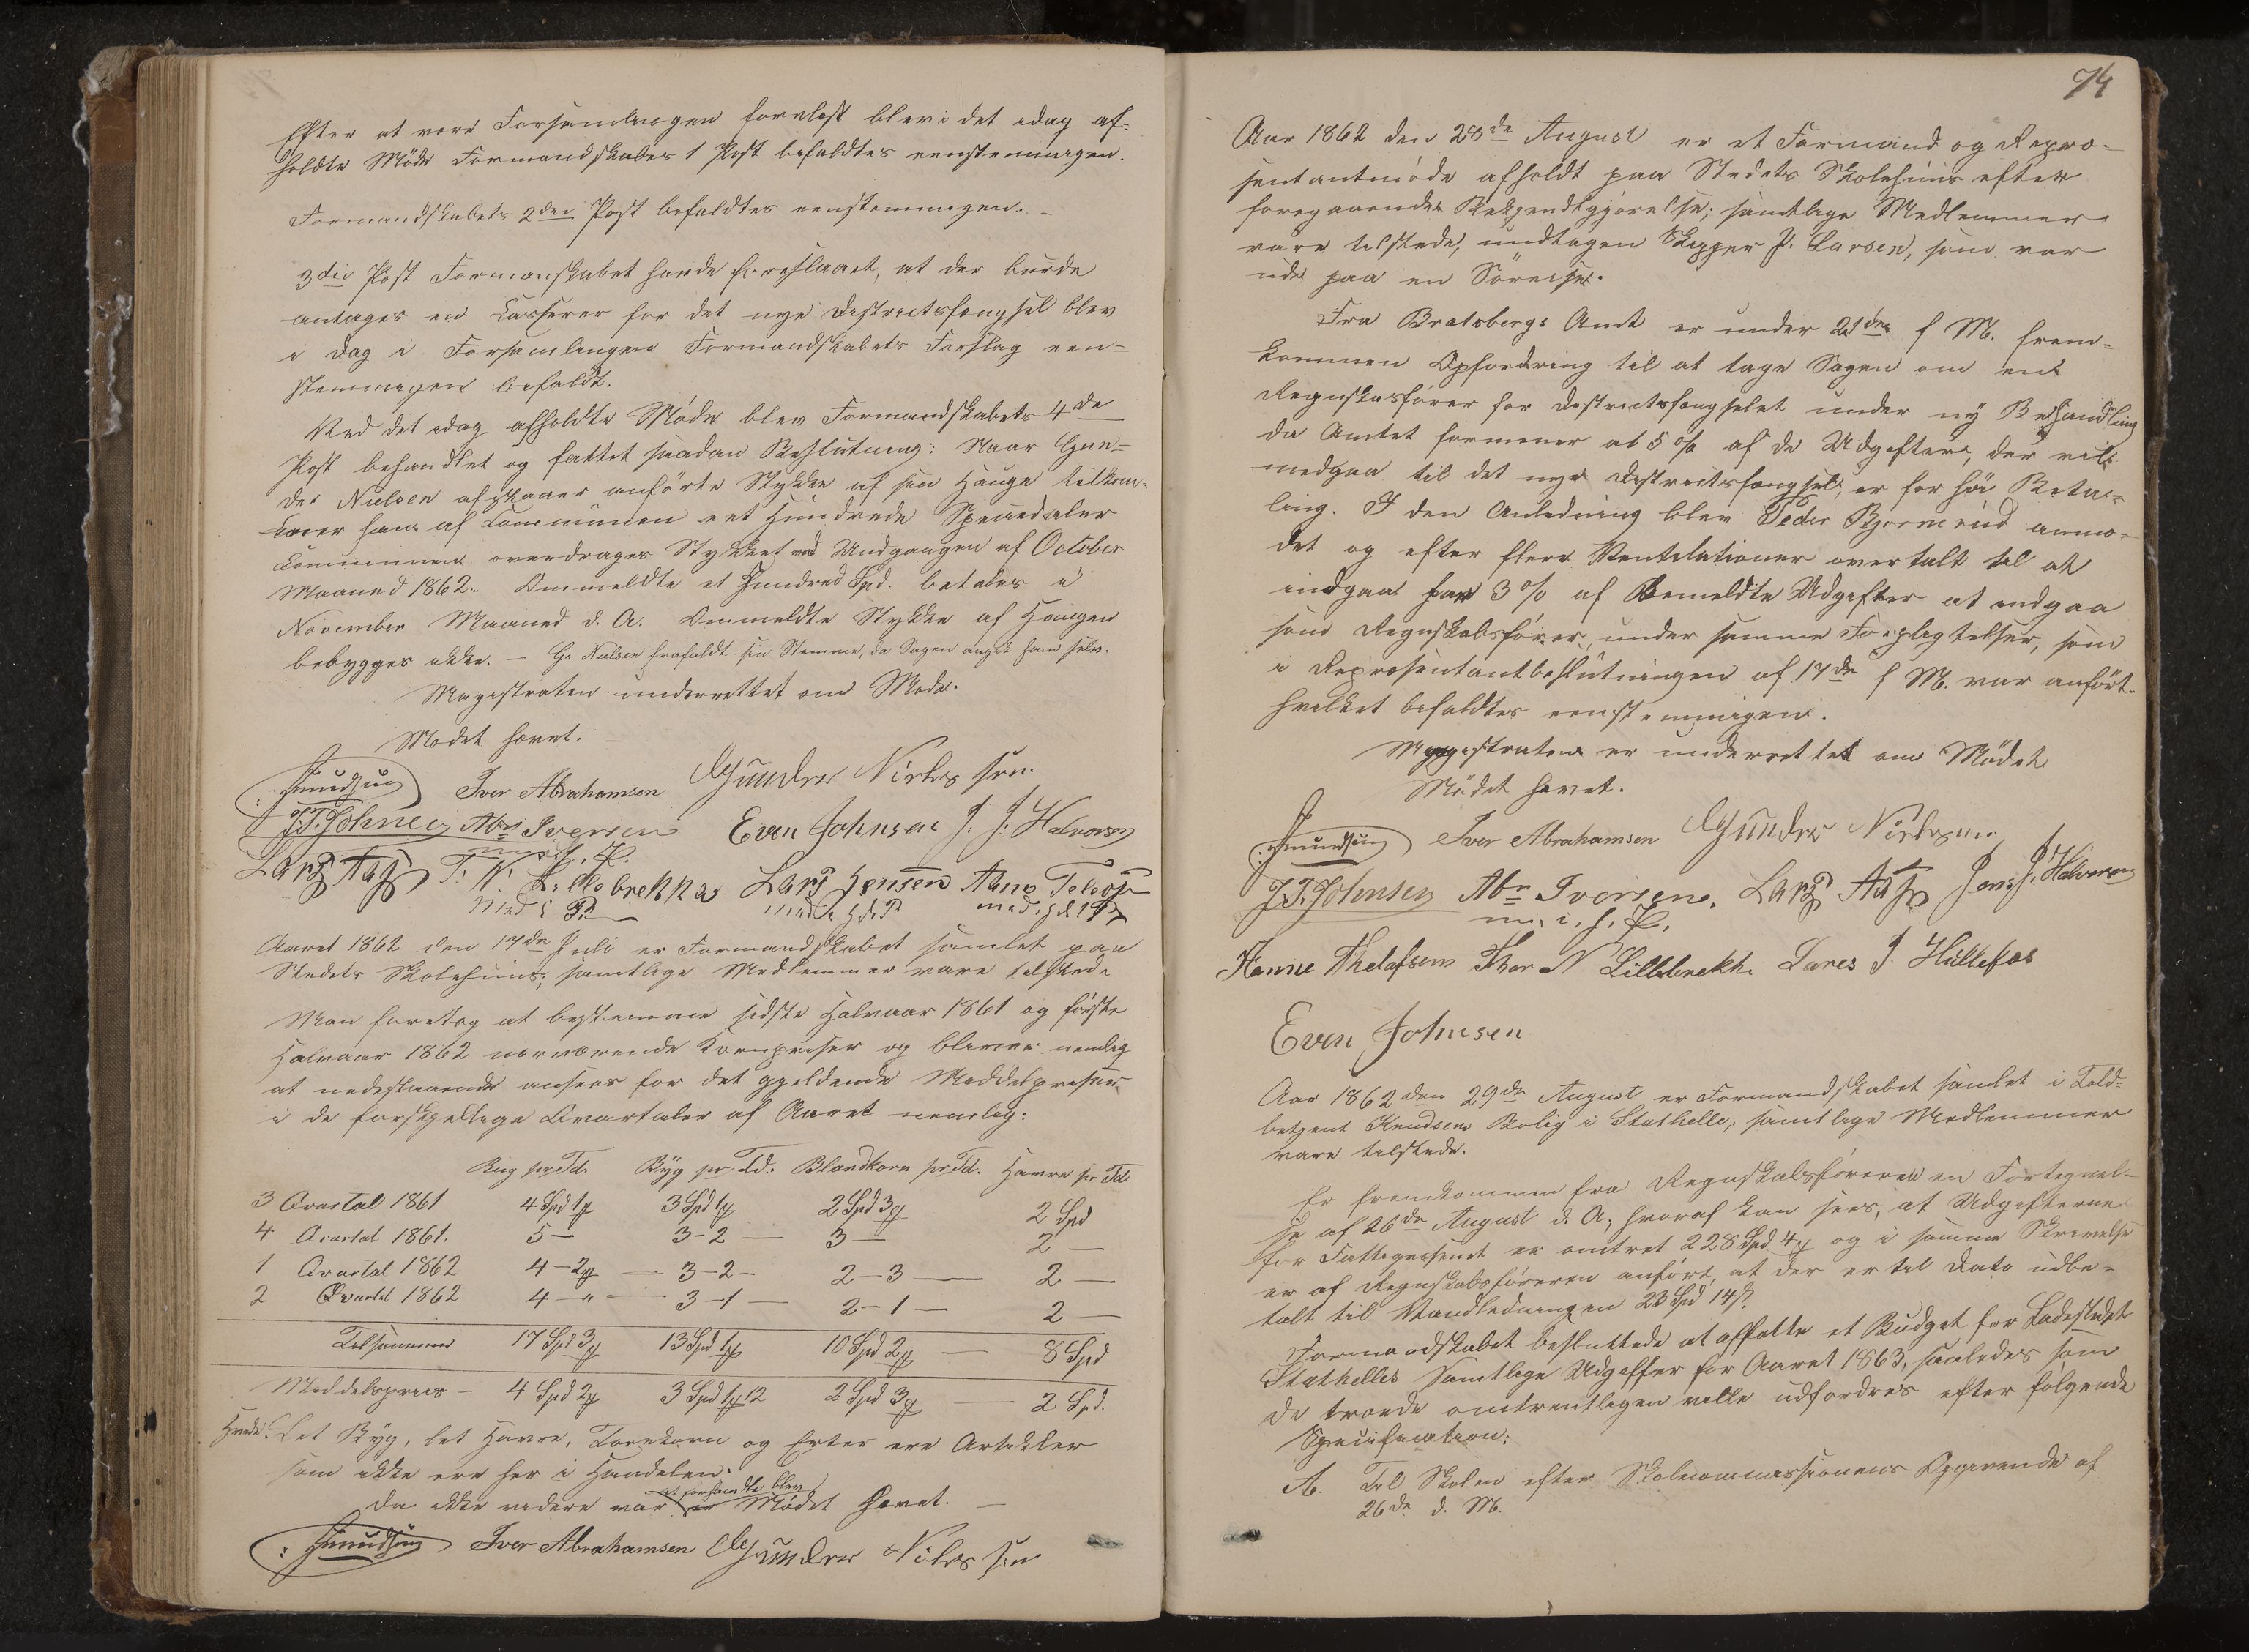 Efter at være Forsamlingen forelæst blev i det idag af-
holdte Møde Formandskabes 1 Post bifaldtes eenstemmigen.
Formandskabets 2den Post bifaldtes eenstemmigen. –
3die Post Formanskabet havde foreslaaet, at der burde
antages en Casserer for det nye Districtsfængsel blev
i Dag i Forsamlingen Formandskabets Forslag een=
stemmigen bifaldt.
Ved det idag afholdte Møde blev Formandskabets 4de
Post behandlet og fattet saadan Beslutning: Naar Gun-
der Nielsen afstaaer anförte Stykke af sin Hauge tilkom-
mer ham af Communen eet Hundrede Speciedaler
Communen overdrages Stykket ved Undgangen af October
Maaned 1862. Ommeldte et Hundred Spd. betales i
November Maaned d. A. Ommeldte Stykke af Haugen
bebygges ikke. – G. Nielsen frafaldt sin Stemme, da Sagen angik ham selv.
Magistraten underrettet om Møde.
Mødet hævet. –
Knudsen Iver Abrahamsen Gunder Nielssen
J. T. Johnsen Abr Iversen Even Johnsen J. J. Halvorsen
m. i. h. P.
Lars Aas T. N. Lillebrekka Lars Jensen
Med i P. med i h. P.
Aaret 1862 den 17de Juli er Formandskabet samlet paa
Stedets Skolehuus; samtlige Medlemmer vare tilstede
Man foretog at bestemme sidste Halvaar 1861 og første
Halvaar 1862 nærværende Kornpriser og bliver nemlig
at nedestaaende ansees for det gjeldende Middelpriser
i de forskjellige Qvartaler af Aaret nemlig:
Rug pr Td. Byg pr Td. Blandkorn pr Td. Havre pr Td.
3 Qvartal 1861 4 Spd 1 3 Spd 1 2 Spd 3 2 Spd
4 Qvartal 1861. 5 – 3 – 2 – 3 – 2 –
1 Qvartal 1862 4 – 2 – 3 – 2 – 2 – 3 – 2 –
2 Qvartal 1862 4 – " – 3 – 1 – 2 – 1 – 2 –
Tilsammen 17 Spd 3 13 Spd 1 10 Spd 2 – 8 Spd
Middelspriis – 4 Spd 2 3 Spd 1 12 2 Spd 3 – 2 Spd.
Hvede. Let Byg, let Havre, og Erter ere Artikler
som ikke ere her i Handelen.
at forhandle blev
Da ikke videre var er Mödet hævet. –
Knudsen Iver Abrahamsen Gunder Nielssen
74
Aar 1862 den 28de August er et Formand og Repræ-
sentantmöde afholdt paa Stedets Skolehuus efter
foregaaende Bekjendtgjörelse; samtlige Medlemmer
vare tilstede, undtagen Skipper P. Larsen, som var
ude paa en Söreise.
Fra Bratsbergs Amt er under 21de f. M. frem-
kommen Opfordring til at tage Sagen om en
Regnskasförer for Districtsfængselet under ny Behandling
da Amtet formener at 5 % af de Udgifter, der vil
medgaa til det nye Districtsfængsel, er for höi Beta-
ling. I den Anledning blev Peder Bjermerud anmo-
det og efter flere Ventilationer overtalt til at
indgaa for 3 % af Bemeldte Udgifter at indgaa
som Regnskabsförer, under samme Forpligtelser, som
i Repræsentantbeslutningen af 17de f. M. var anfört.
hvilket bifaldtes eenstemmigen.
Magistraten er underrettet om Mödet
Mödet hævet.
Knudsen Iver Abrahamsen Gunder Nielssen
J. T. Johnsen Abr Iversen. Lars Aas Jens J. Halvorsen
m. i. h. P.
Hanne Thelefsen Thor N Lillebrekke Lares J. Hullefos
Even Johnsen
Aar 1862 den 29de August er Formandskabet samlet i Told-
betjent Knudsens Bolig i Stathelle; samtlige Medlemmer
vare tilstede.
Er fremkommen fra Regnskabsföreren en Fortegnel-
se af 26de August d. A., hvoraf kan sees, at Udgifterne
for Fattigvæsenet er omtret 228 Spd 4 og i samme Skrivelse
er af Regnskabsföreren anfört, at der er til Dato udbe-
talt til Vandledningen 23 Spd 14 ß.
Formandskabet besluttede at affatte et Budget for Ladestedet
Stathelles samtlige Udgifter for Aaret 1863, saaledes som
de troede omtrentligen ville udfordres efter fölgende
Specification:
A. Til Skolen efter Skolecommissionens Opgivende af
26de d. M.